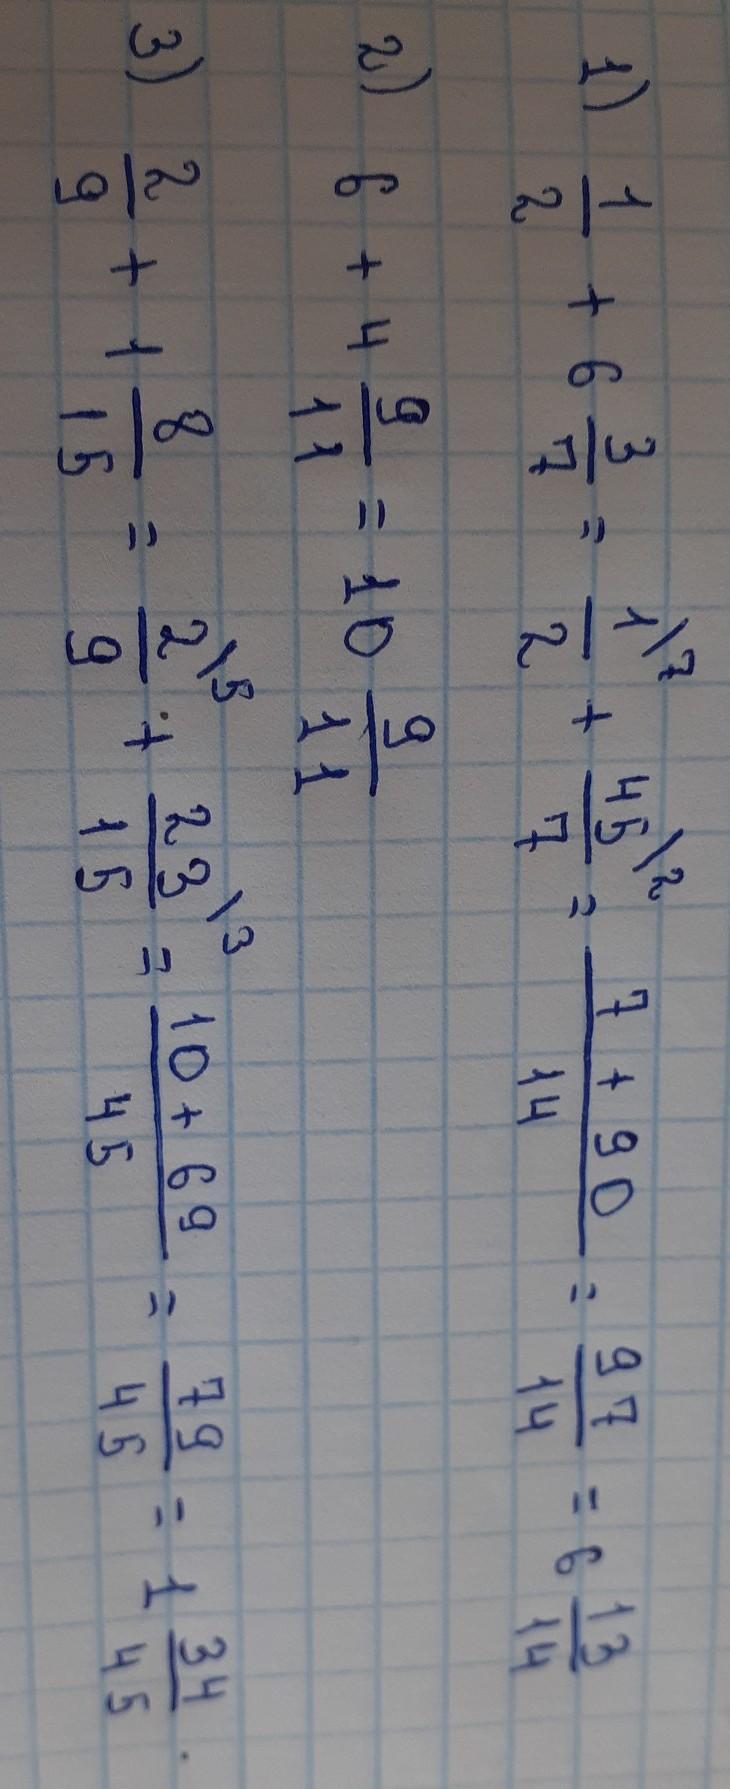 1) 1/2 + 6 3/7 = 1\7/2 + 45\2/7 = 7+90/14 = 97/14 = 6 13/14
2) 6 + 4 9/11 = 10 9/11
3) 2/9 + 1 8/15 = 2\5/9 + 23\3/15 = 10+69/45 = 79/45 = 1 34/45.